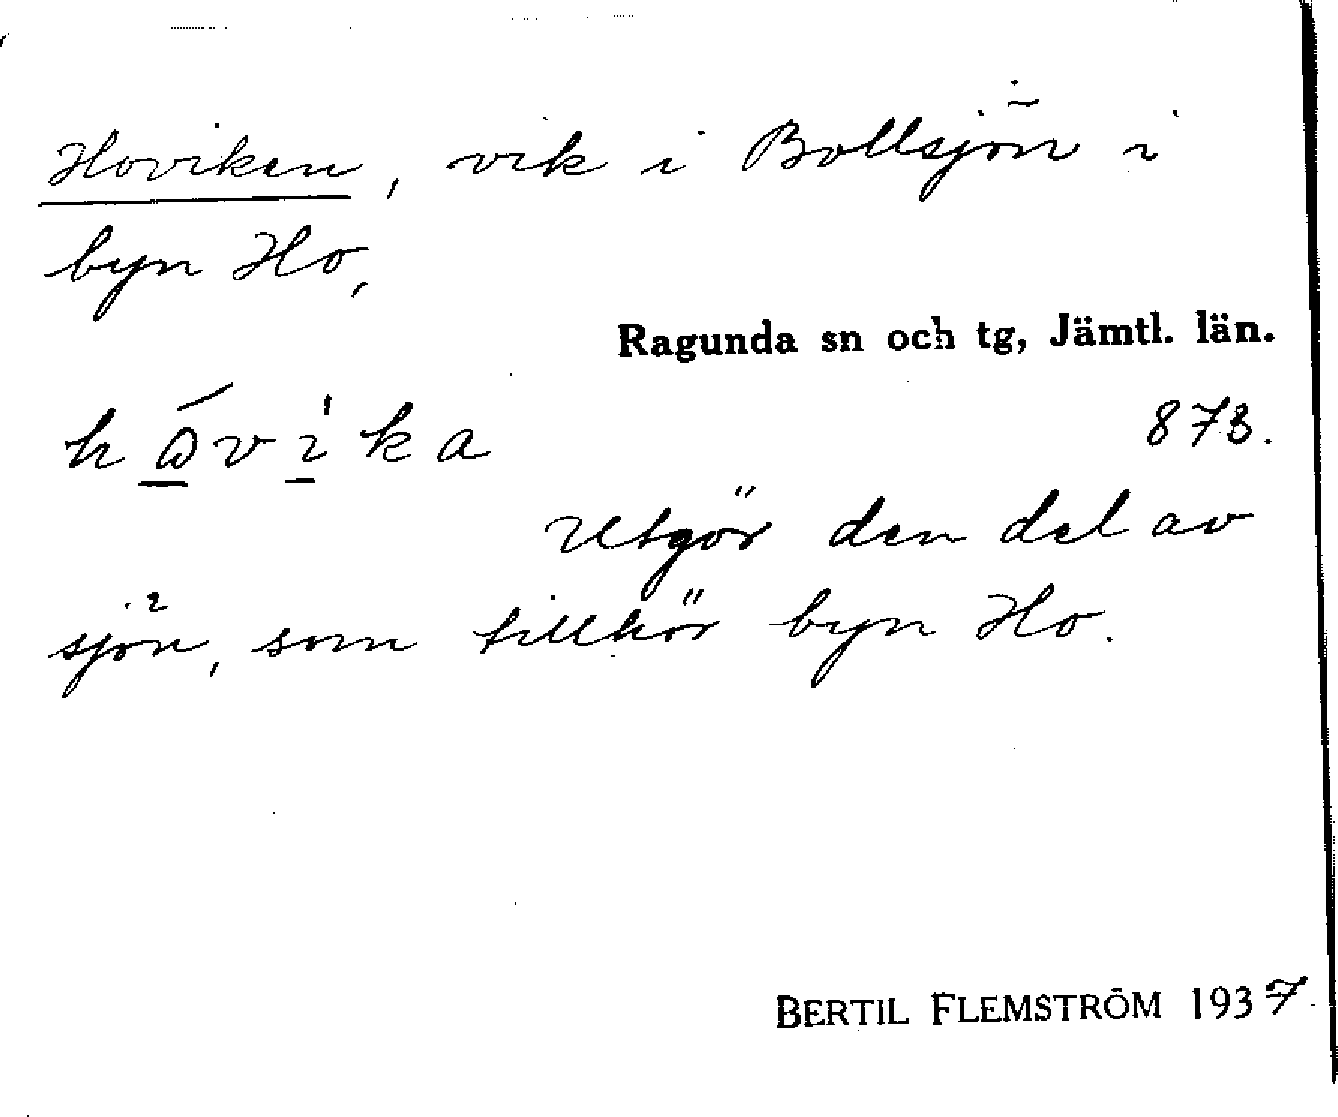 Hoviken, vik i Bollsjön i
byn Ho,
Ragunda sn och tg, Jämtl. län.
873.
Utgör den del av
sjön, som tillhör byn Ho.
BERTIL FLEMSTRÖM 1937.